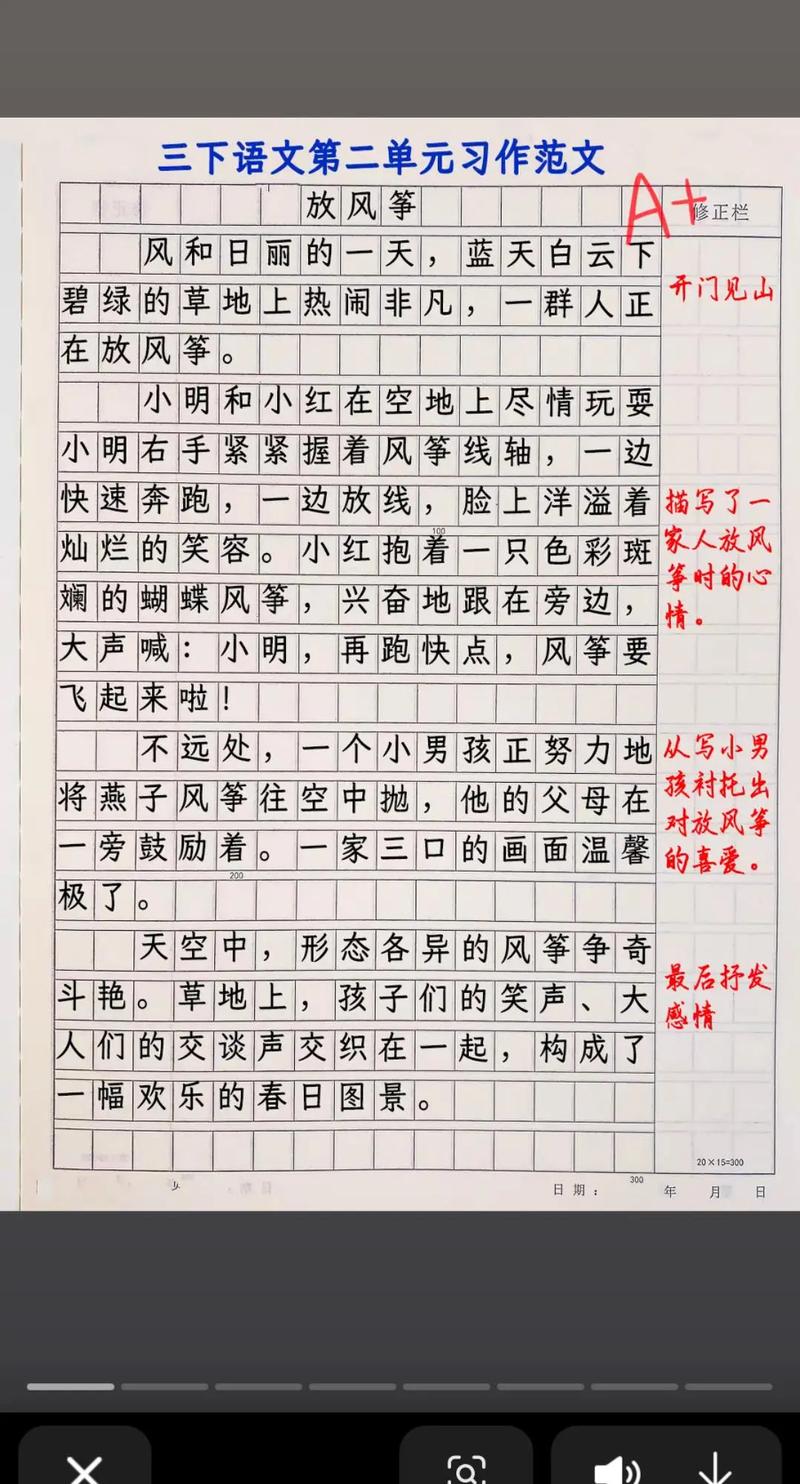 三下语文第二单元习作范文
放风筝
A+
修正栏
风和日丽的一天，蓝天白云下
碧绿的草地上热闹非凡，一群人正
在放风筝。
开门见山
小明和小红在空地上尽情玩耍
小明右手紧紧握着风筝线轴，一边
快速奔跑，一边放线，脸上洋溢着
100
灿烂的笑容。小红抱着一只色彩斑
斓的蝴蝶风筝，兴奋地跟在旁边，
大声喊：小明，再跑快点，风筝要
飞起来啦！
描写了一
家人放风
筝时的心
情。
不远处，一个小男孩正努力地
将燕子风筝往空中抛，他的父母在
一旁鼓励着。一家三口的画面温馨
200
极了。
从写小男
孩衬托出
对放风筝
的喜爱。
天空中，形态各异的风筝争奇
斗艳。草地上，孩子们的笑声、大
人们的交谈声交织在一起，构成了
一幅欢乐的春日图景。
最后抒发
感情
20×15=300
300
日期： 年 月 日